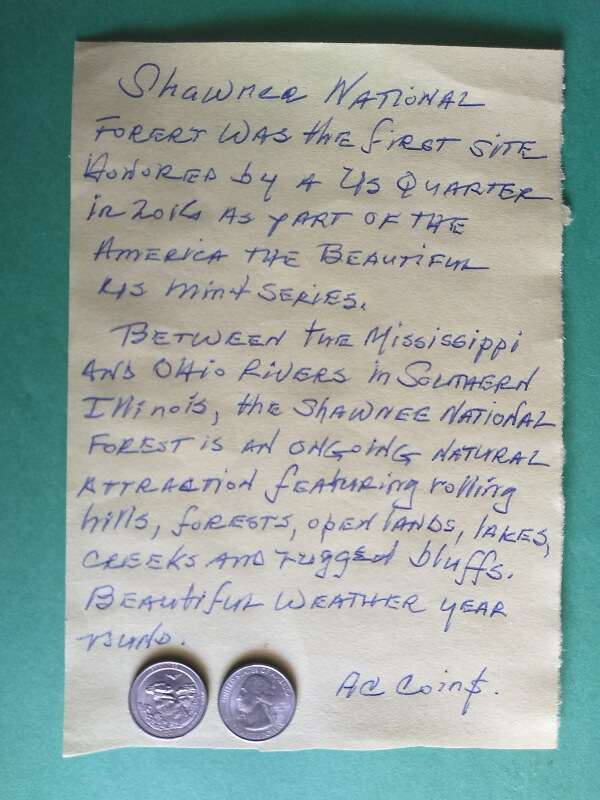 Shawnee National
Forert was the first site
Honored by a US Quarter
in 2016 as part of the
America the Beautiful
US Mint Series.
Between the Mississippi
and Ohio Rivers in Southern
Illinois, the Shawnee National
Forest is an ongoing natural
attraction featuring rolling
hills, forests, open lands, lakes,
creeks and rugged bluffs.
Beautiful weather year
round.
AC Coin$.